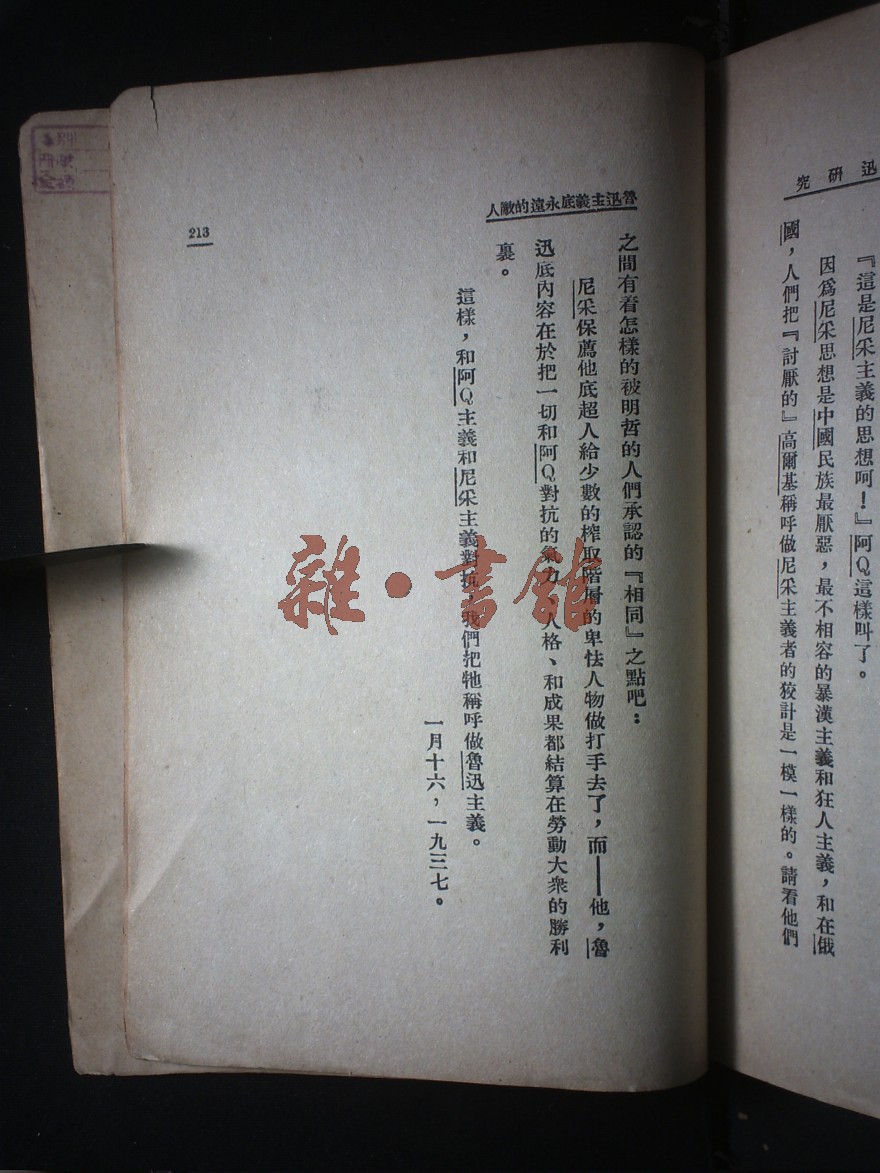 迅研究
『這是尼采主義的思想呵!』阿Q這樣叫了。
因爲尼采思想是中國民族最厭惡,最不相容的暴漢主義和狂人主義,和在俄
國,人們把『討厭的』高爾基稱呼做尼采主義者的狡計是一模一樣的。請看他們
魯迅主義底永遠的敵人
之間有着怎樣的被明哲的人們承認的『相同』之點吧:
尼采保薦他底超人給少數的榨取階層的卑怯人物做打手去了,而——他,魯
迅底內容在於把一切和阿Q對抗的氣力、人格、和成果都結算在勞動大衆的勝利
裏。
這樣,和阿Q主義和尼采主義對抗,我們把牠稱呼做魯迅主義。
一月十六,一九三七。
213
雜·書館